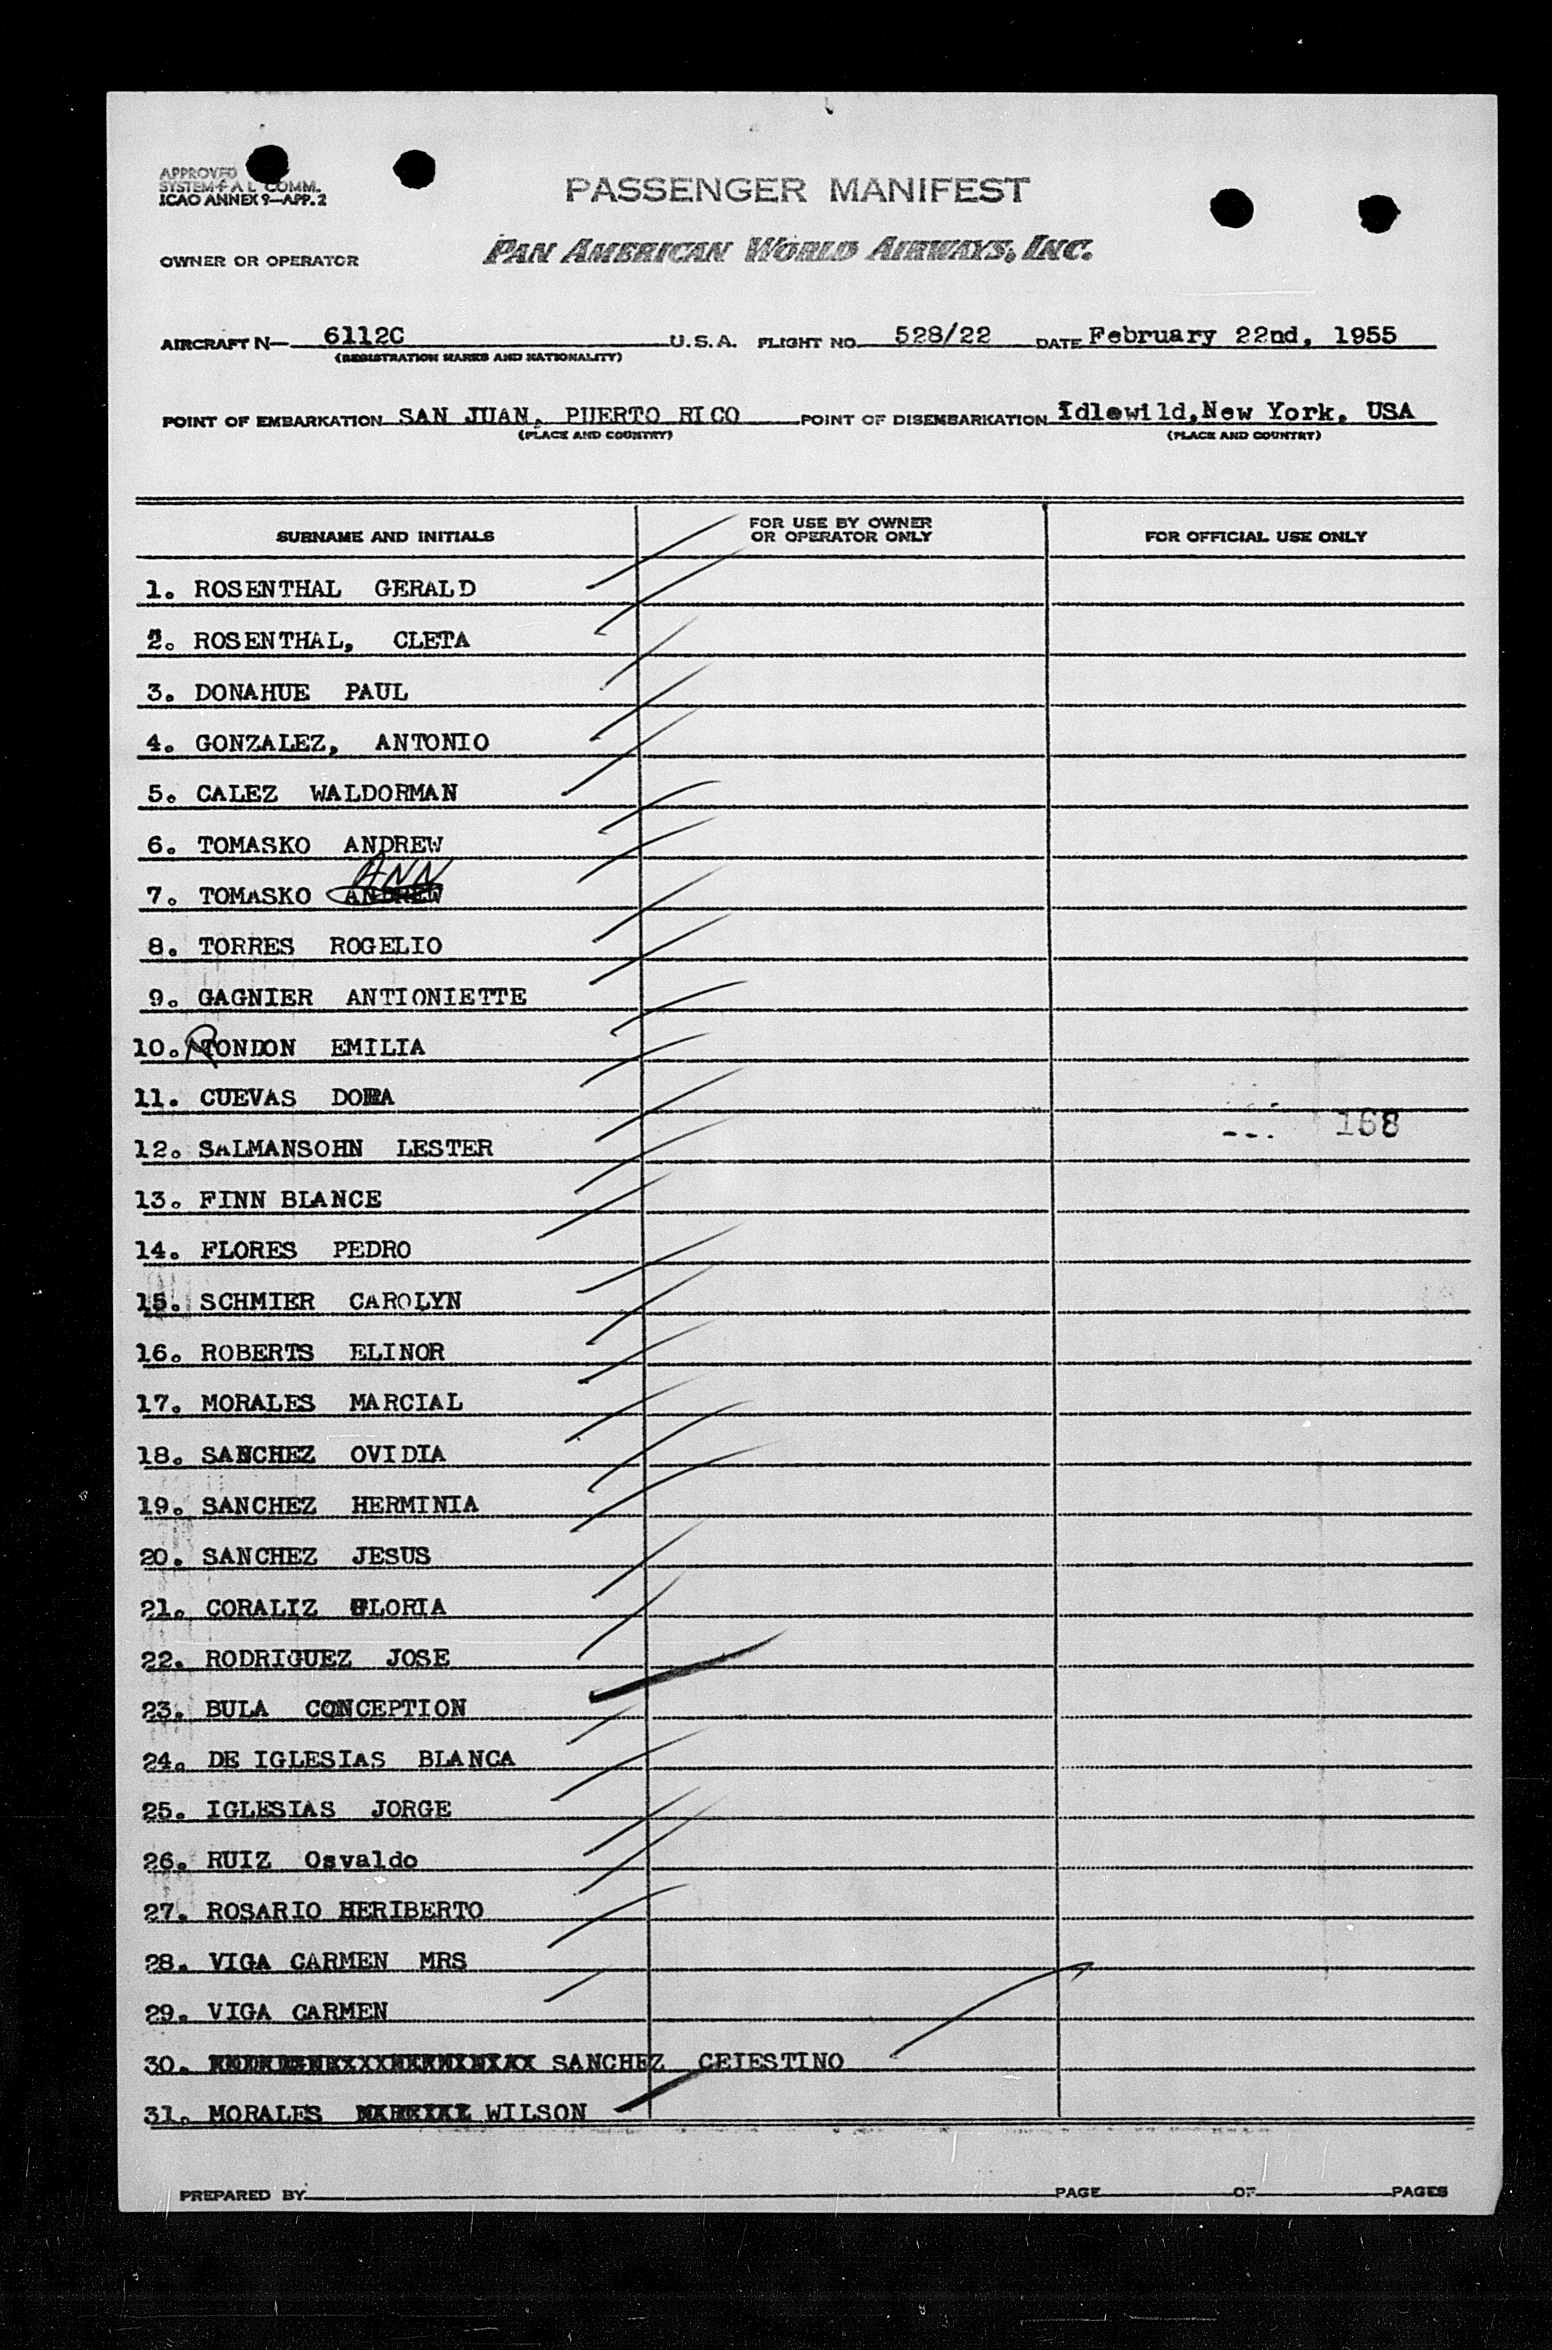 APPROVED
SYSTEM F A L COMM.
ICAO ANNEX 9—APP. 2
PASSENGER MANIFEST
OWNER OR OPERATOR PAN AMERICAN WORLD AIRWAYS, INC.
AIRCRAFT N— 6112C U.S.A. FLIGHT NO. 528/22 DATE February 22nd, 1955
(REGISTRATION MARKS AND NATIONALITY)
POINT OF EMBARKATION SAN JUAN, PUERTO RICO POINT OF DISEMBARKATION Idlewild,New York, USA
(PLACE AND COUNTRY) (PLACE AND COUNTRY)
SURNAME AND INITIALS FOR USE BY OWNER OR OPERATOR ONLY FOR OFFICIAL USE ONLY
1. ROSENTHAL GERALD
2. ROSENTHAL, CLETA
3. DONAHUE PAUL
4. GONZALEZ, ANTONIO
5. CALEZ WALDORMAN
6. TOMASKO ANDREW
7. TOMASKO ANDREW ANN
8. TORRES ROGELIO
9. GAGNIER ANTIONIETTE
10. RONDON EMILIA
11. CUEVAS DORA
168
12. SALMANSOHN LESTER
13. FINN BLANCE
14. FLORES PEDRO
15. SCHMIER CAROLYN
16. ROBERTS ELINOR
17. MORALES MARCIAL
18. SANCHEZ OVIDIA
19. SANCHEZ HERMINIA
20. SANCHEZ JESUS
21. CORALIZ GLORIA
22. RODRIGUEZ JOSE
23. BULA CONCEPTION
24. DE IGLESIAS BLANCA
25. IGLESIAS JORGE
26. RUIZ Osvaldo
27. ROSARIO HERIBERTO
28. VIGA CARMEN MRS
29. VIGA CARMEN
30. SANCHEZ CEIESTINO
31. MORALES WILSON
PREPARED BY PAGE OF PAGES